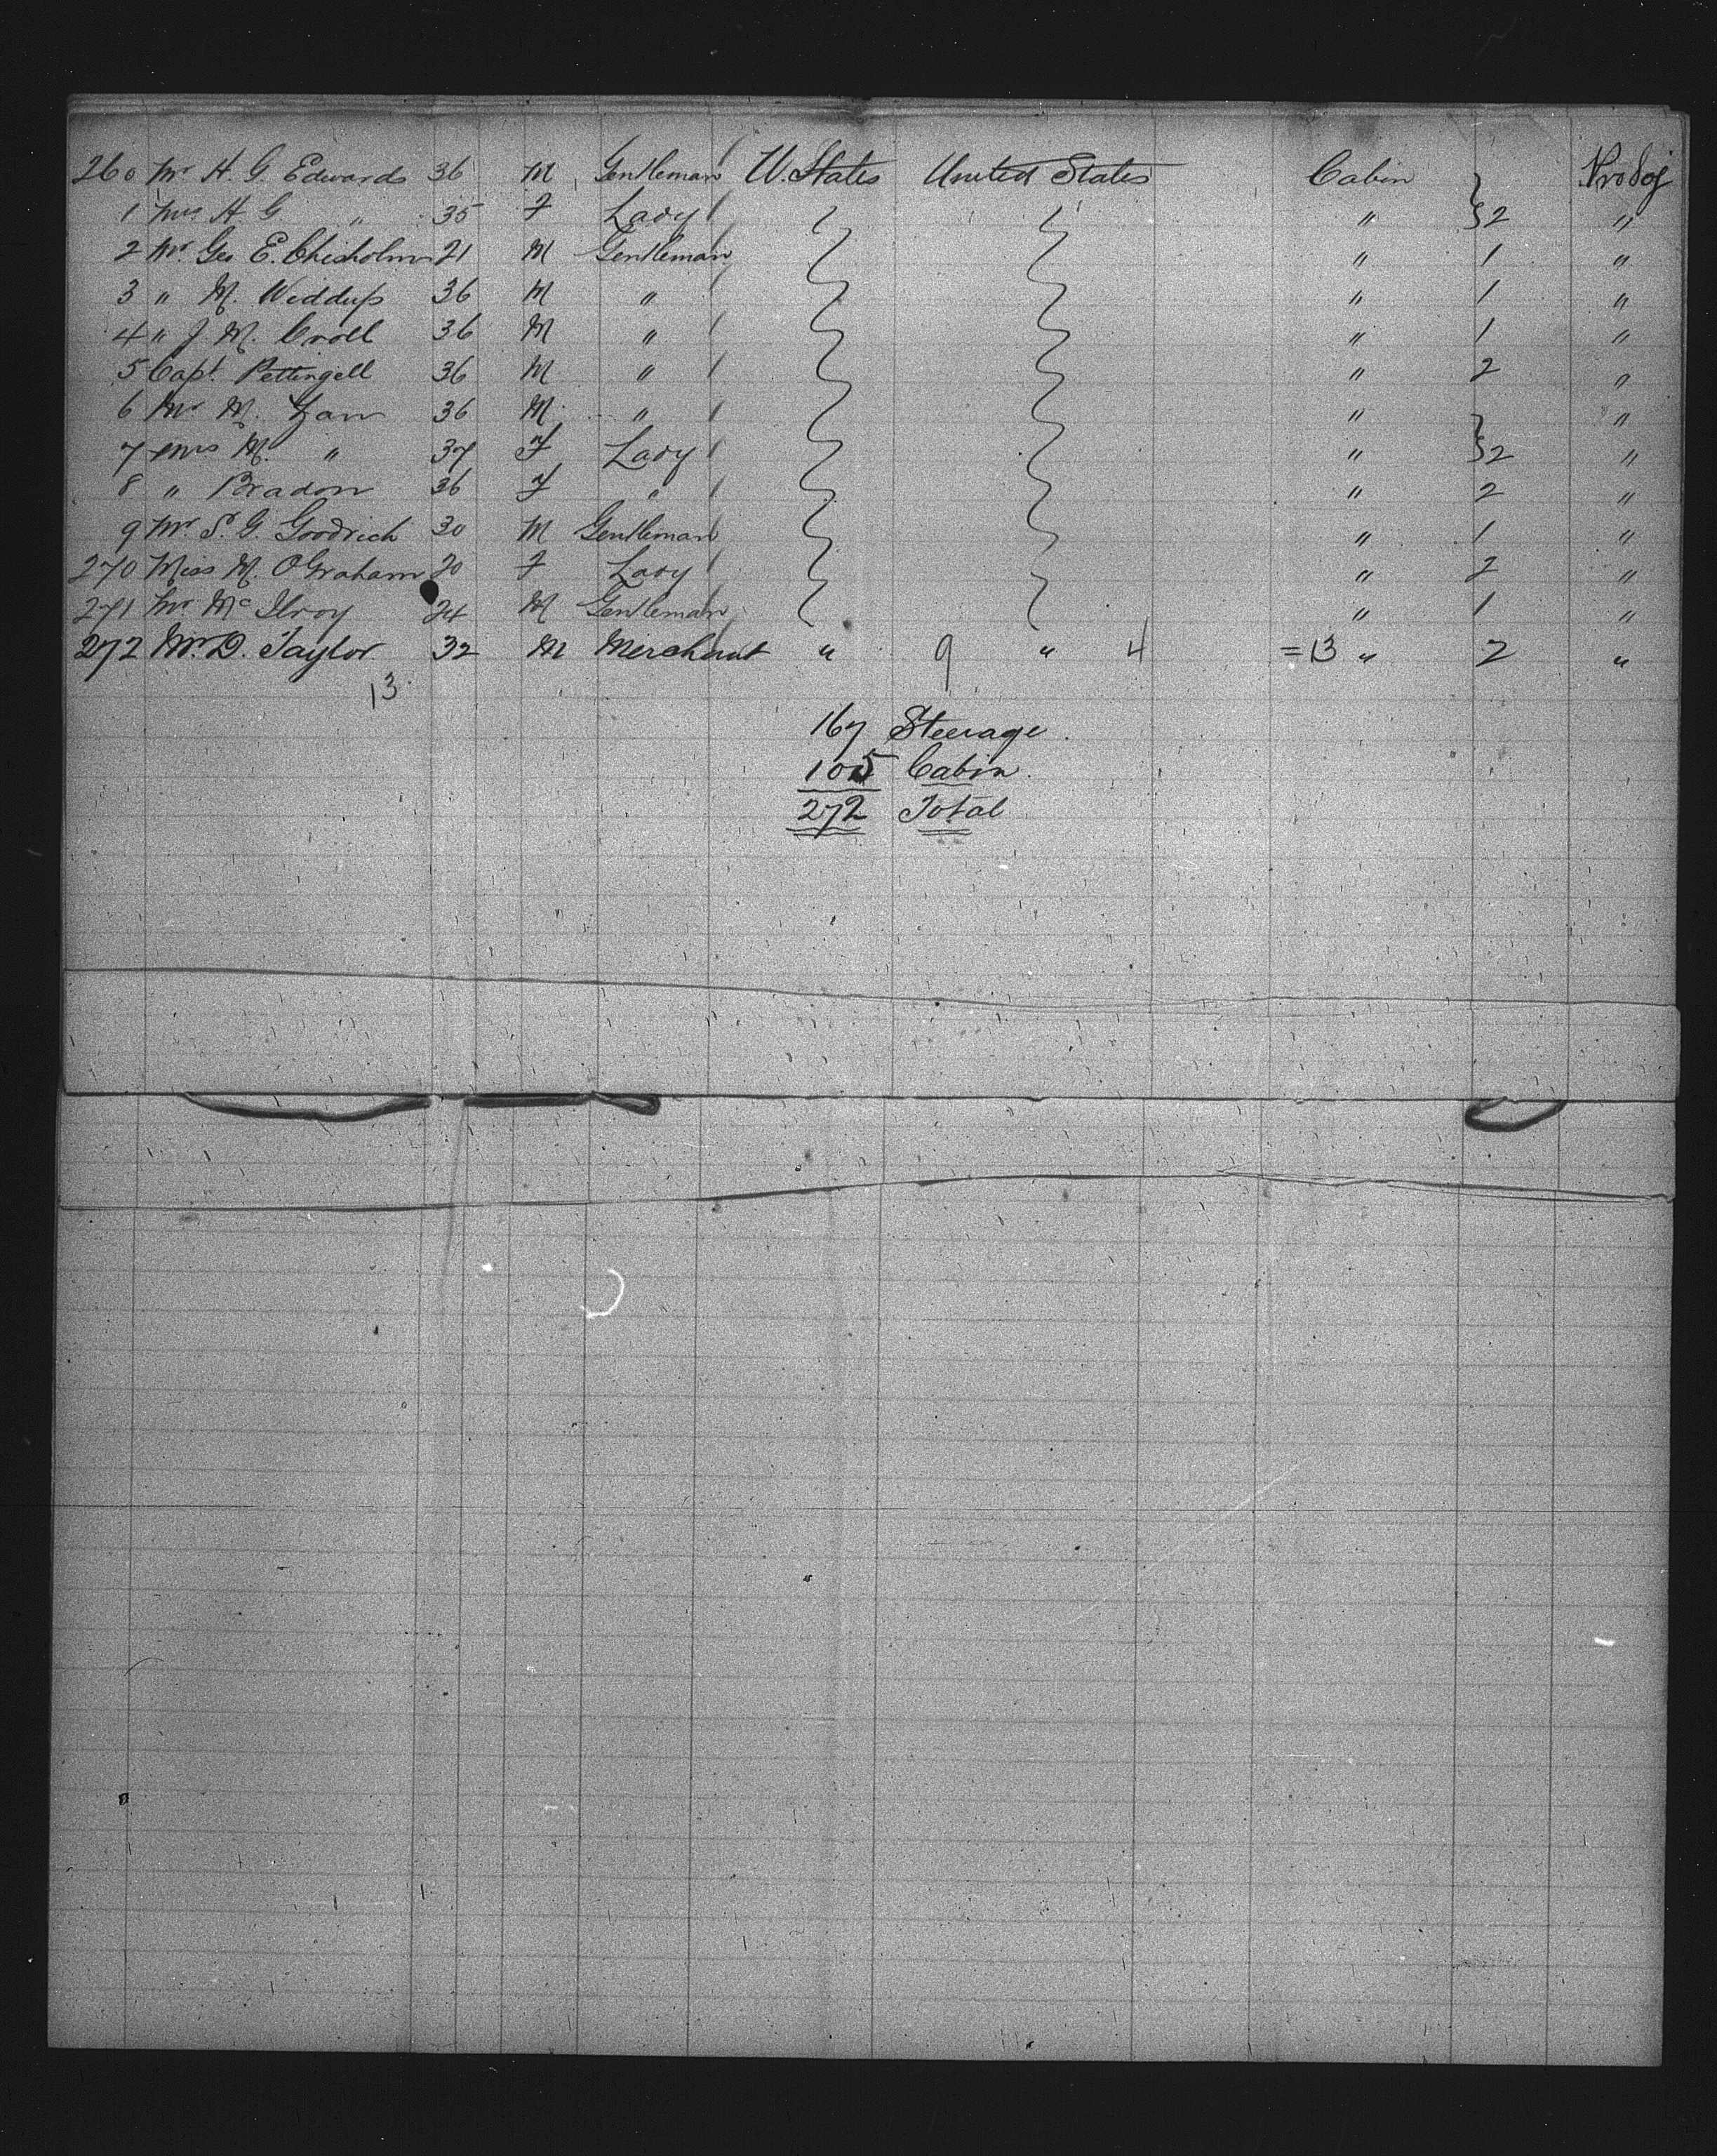 260 Mr H. G. Edwards 36 M Gentleman U. States United States Cabin } Pro Soj
1 Mrs H G. " 35 F Lady " } 2 "
2 Mr. Geo E. Chisholm 21 M Gentleman " 1 "
3 " M. Widdup 36 M " " 1 "
4 " J. M. Croll 36 M " " 1 "
5 Capt. Pettingell 36 M " " 2 "
6 Mr M. 36 M " " "
7 Mrs M. " 37 F Lady " } 2 "
8 " Bradon 36 F " " 2 "
9 Mr. S. G. Goodrich 30 M Gentleman " 1 "
270 Miss M. O Graham 20 F Lady " 2 "
271 Mr Mc Ilroy 24 M Gentleman " 1 "
272 Mr. D. Taylor 32 M Merchant " 9 " 4 = 13 " 2 "
13
167 Steerage.
105 Cabin.
272 Total